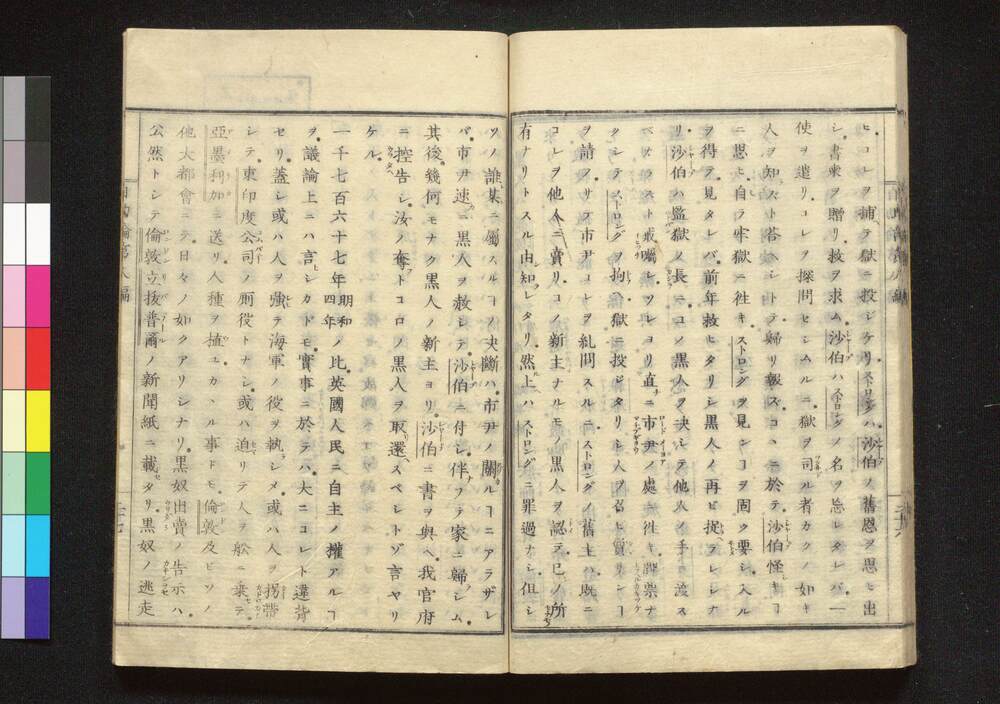 ヒ。コレヲ捕テ獄ニ投ジケリ。ストロングハ。沙伯ノ舊恩ヲ思ヒ出
シ。書柬ヲ贈リ。救ヲ求ム。沙伯ハ。ストロングノ名ヲ忘レタレバ。一
使ヲ遣リ。コレヲ探問セシムルニ。獄ヲ司ル者。カクノ如キ
人ヲ知ズト答ヘシトテ歸リ報ズ。コヽニ於テ。沙伯怪キヿ
ニ思ヒ。自ラ牢獄ニ往キ。ストロングヲ見ンヿヲ固ク要シ。入ル
ヲ得テ見タレバ。前年救ヒタリシ黒人ノ。再ビ捉ヘラレシナ
リ。沙伯ハ監獄ノ長ニ。コノ黒人ヲ決シテ他人ノ手ニ渡ス
ベカラズト戒囑シ。ソレヨリ直ニ市尹ノ處ニ往キ。牌票ナ
クシテ。ストロングヲ拘ヘ。獄ニ投ジタリシ人ヲ召ヒ質サンヿ
ヲ請フ。サテ市尹コレヲ糺問スルニ。ストロングノ舊主ハ。既ニ
コレヲ他人ニ賣リ。コノ新主ナルモノ。黒人ヲ認テ。己ノ所
有ナリトスル由知レタリ。然ル上ハ。ストロングニ罪過ナシ。但シ
ソノ誰某ニ屬スルヿノ決斷ハ。市尹ノ關ルヿニアラザレ
バ。市尹速ニ黒人ヲ赦シテ。沙伯ニ付シ。伴フテ家ニ歸ラシム。
其後幾何モナク。黒人ノ新主ヨリ。沙伯ニ書ヲ與ヘ。我官府
ニ控告シ。汝ノ奪フトコロノ黒人ヲ取還スベシトゾ言ヤリ
ケル。
一千七百六十七年明和四年ノ比。英國人民ニ自主ノ權アルヿ
ヲ。議論上ニハ言ヒシカドモ。實事ニ於テハ。大ニコレト違背
セリ。蓋シ或ハ人ヲ強テ海軍ノ役ヲ執シメ。或ハ人ヲ拐帶
シテ。東印度公司ノ厠役トナシ。或ハ迫リテ人ヲ舩ニ乗テ。
亞墨利加ニ送リ。人種ヲ植ユ。カヽル事ドモ。倫敦及ビソノ
他大都會ニテ。日々ノ如クアリシナリ。黒奴出賣ノ告示ハ。
公然トシテ倫敦立抜普爾ノ新聞紙ニ載セタリ。黒奴ノ逃走